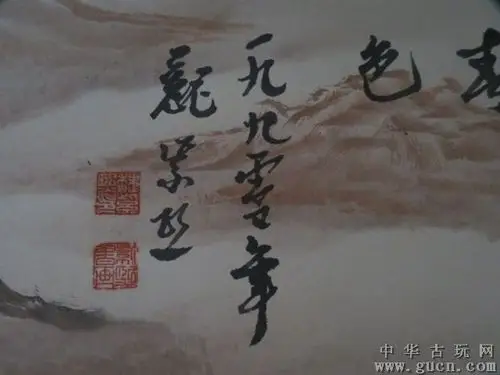 色
一九九零年
魏紫熙
中华古玩网
www.gucn.com